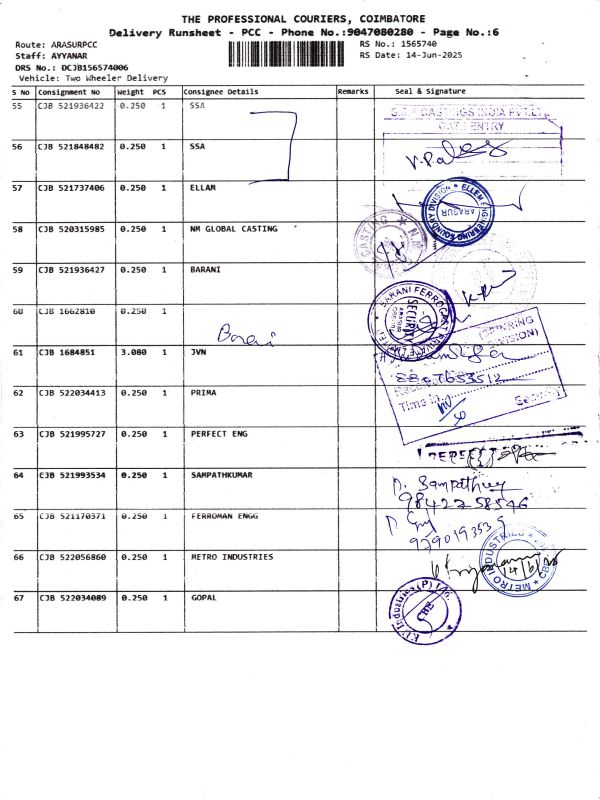 THE PROFESSIONAL COURIERS, COIMBATORE
Delivery Runsheet - PCC - Phone No.:9047080280 - Page No.:6
Route: ARASURPCC
RS No.: 1565740
Staff: AYYANAR
RS Date: 14-Jun-2025
DRS No.: DCJB156574006
Vehicle: Two Wheeler Delivery
S No Consignment No Weight PCS Consignee Details Remarks Seal & Signature
55 CJB 521936422 0.250 1 SSA
CASTINGS INDIA PVT.LTD
DATA ENTRY
56 CJB 521848482 0.250 1 SSA
57 CJB 521737406 0.250 1 ELLAM
ELLEM ENGINEERING FOUNDRY DIVISION
ARASUR
58 CJB 520315985 0.250 1 NM GLOBAL CASTING
CASTING
59 CJB 521936427 0.250 1 BARANI
BARANI FERROCAST PRIVATE
SECURITY
60 CJB 1662810 0.250 1
(SPINNING
DIVISION)
61 CJB 1684851 3.080 1 JVN
62 CJB 522034413 0.250 1 PRIMA
Time
Security
63 CJB 521995727 0.250 1 PERFECT ENG
64 CJB 521993534 0.250 1 SAMPATHKUMAR
D. Sampathkumar
9842258546
65 CJB 521170371 0.250 1 FERROMAN ENGG
66 CJB 522056860 0.250 1 METRO INDUSTRIES
METRO INDUSTRIES
CBE
67 CJB 522034089 0.250 1 GOPAL
Industries (P) Ltd.
CBE